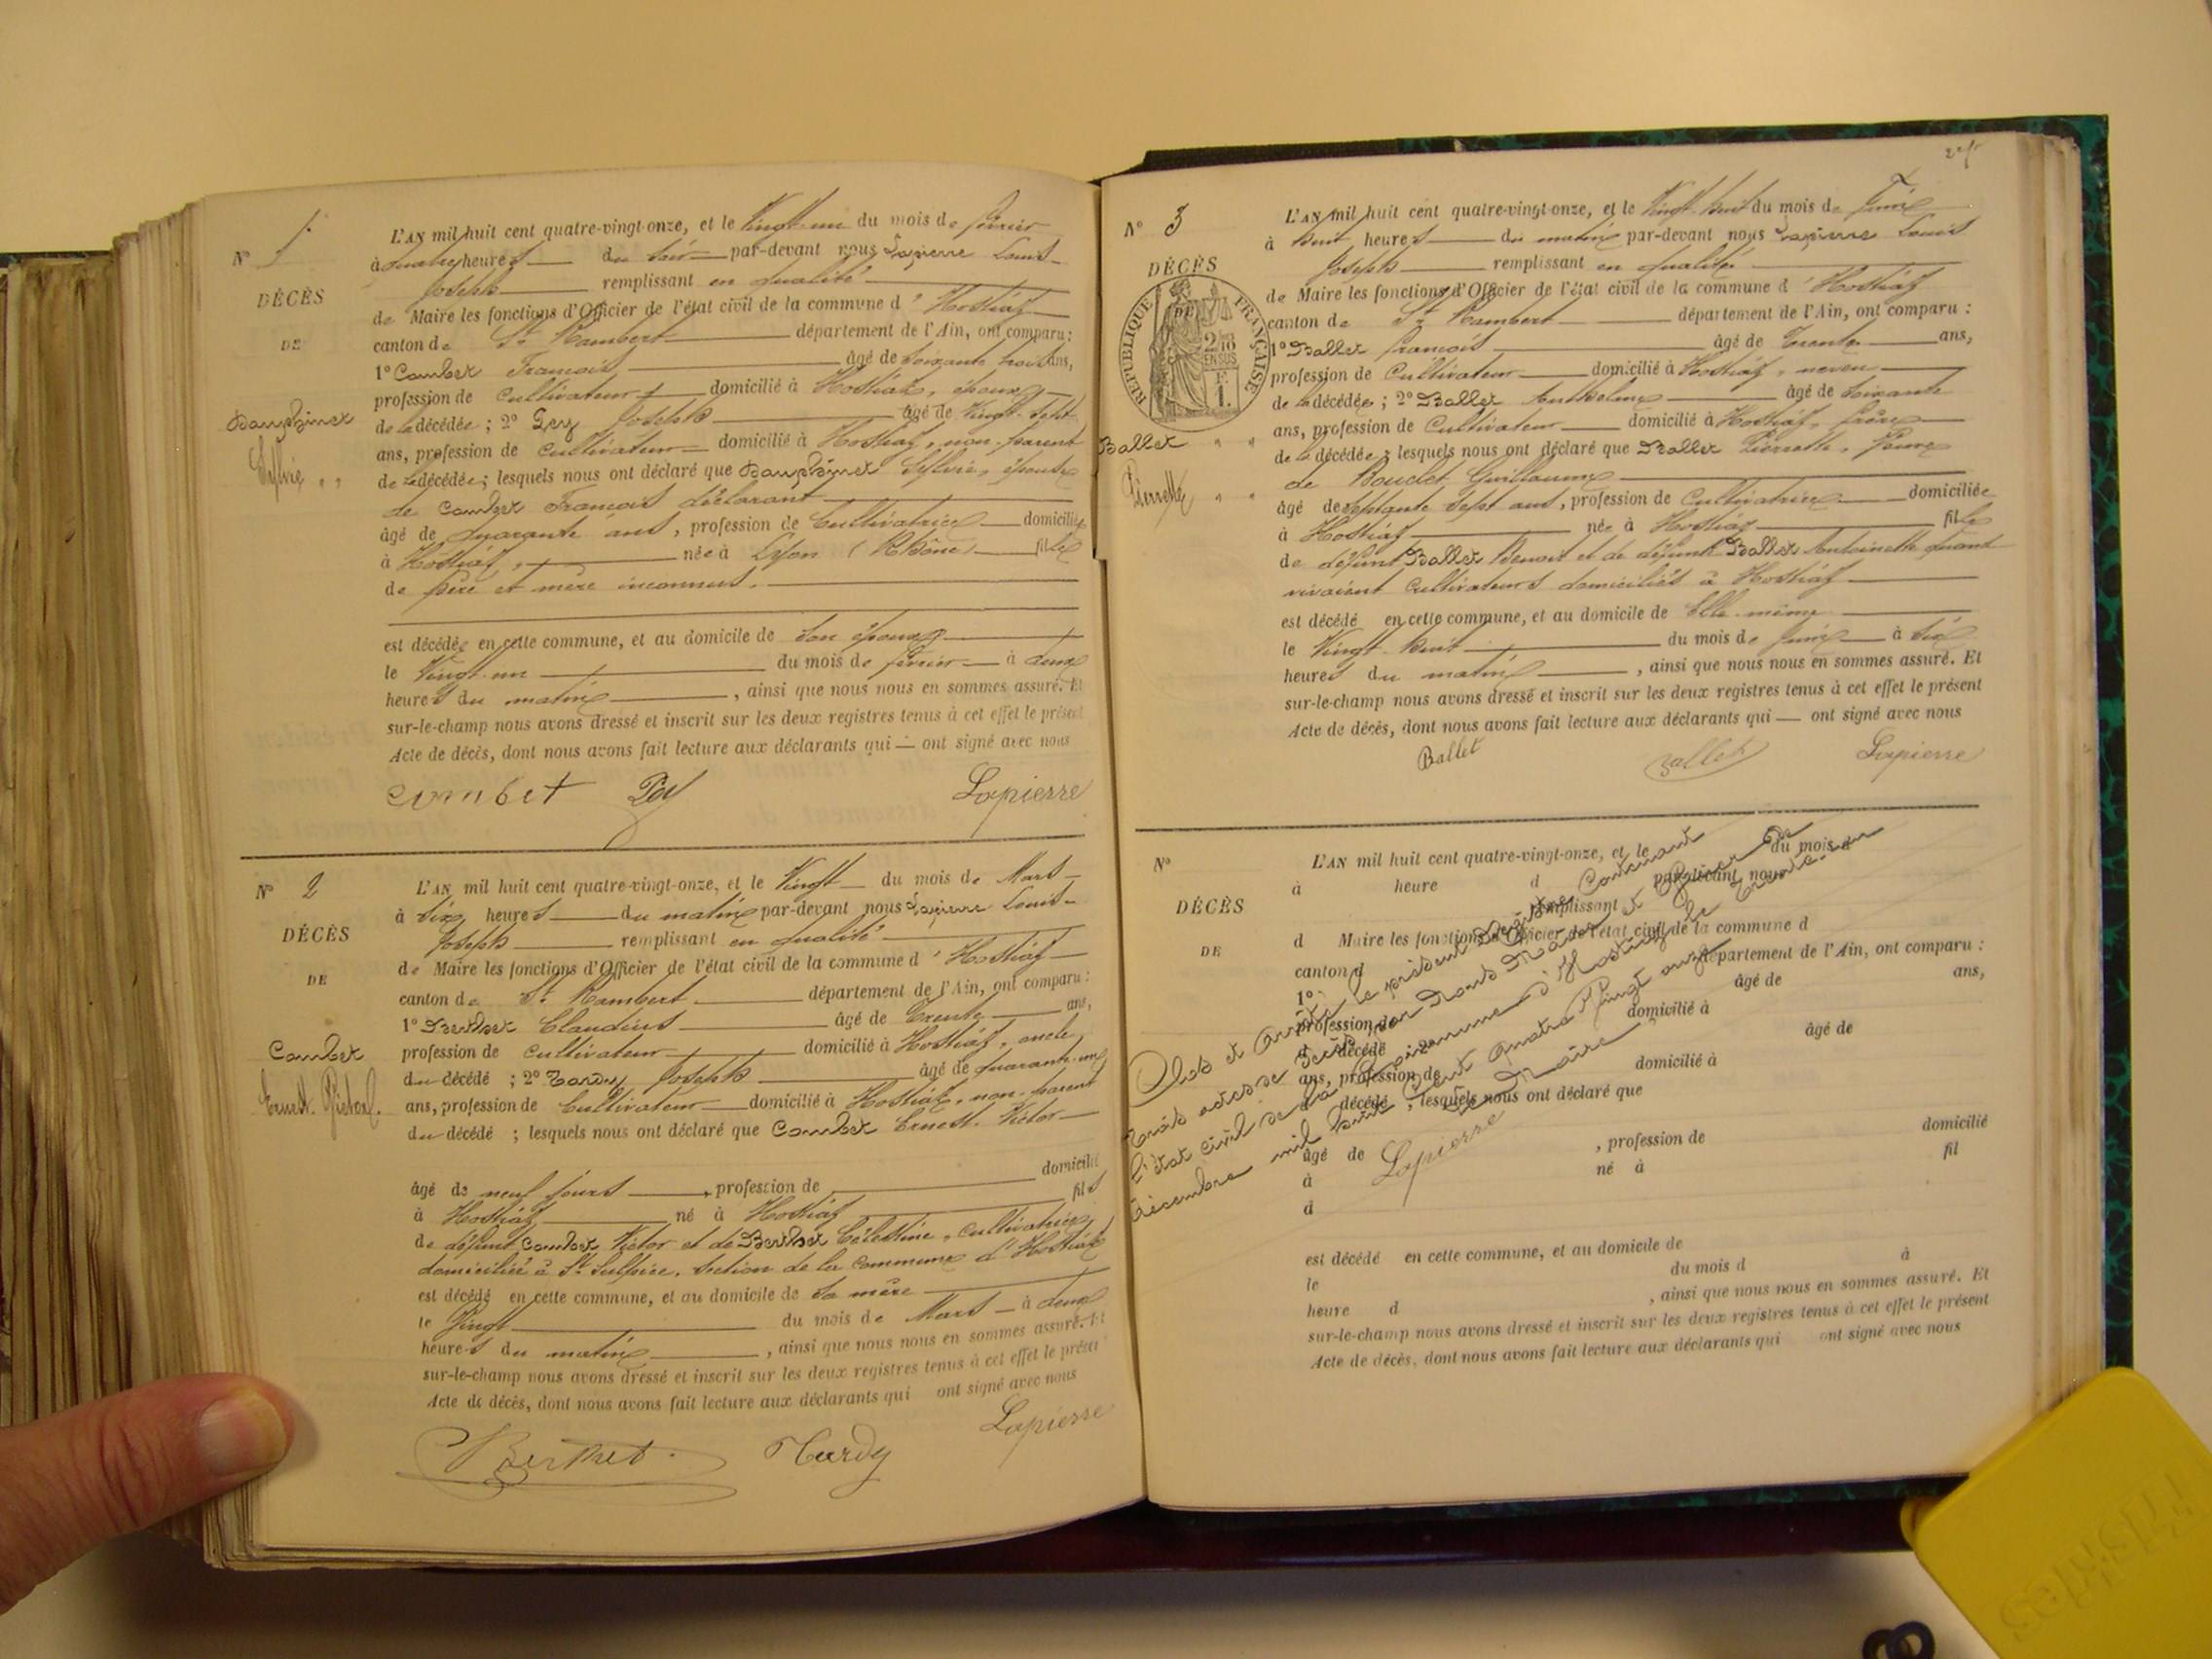 N° 1
DÉCÈS
DE
Dauphinet
Sylvie " "
L'AN mil huit cent quatre-vingt-onze, et le Vingt-un du mois de février
à quatre heures du soir par-devant nous Lapierre Louis-
Joseph remplissant en qualité
de Maire les fonctions d'Officier de l'état civil de la commune d'Hostiaz
canton de St Rambert département de l'Ain, ont comparu :
1° Combet François âgé de soixante trois ans,
profession de Cultivateur domicilié à Hostiaz, époux
de la décédée ; 2° Pey Joseph âgé de Vingt-sept
ans, profession de Cultivateur domicilié à Hostiaz, non-parent
de la décédée ; lesquels nous ont déclaré que Dauphinet Sylvie, épouse
de Combet François déclarant
âgé de quarante ans, profession de Cultivatrice domiciliée
à Hostiaz, née à Lyon (Rhône) fille
de père et mère inconnus.
est décédée en cette commune, et au domicile de son époux
le Vingt-un du mois de février à deux
heures du matin, ainsi que nous nous en sommes assuré. Et
sur-le-champ nous avons dressé et inscrit sur les deux registres tenus à cet effet le présent
Acte de décès, dont nous avons fait lecture aux déclarants qui — ont signé avec nous
combet Pey Lapierre
N° 2
DÉCÈS
DE
Combet
Ernest-Victor.
L'AN mil huit cent quatre-vingt-onze, et le Vingt du mois de Mars
à six heures du matin par-devant nous Lapierre Louis-
Joseph remplissant en qualité
de Maire les fonctions d'Officier de l'état civil de la commune d'Hostiaz
canton de St. Rambert département de l'Ain, ont comparu :
1° Berthet Claudius âgé de Trente ans,
profession de Cultivateur domicilié à Hostiaz, oncle
du décédé ; 2° Tardy Joseph âgé de quarante-un
ans, profession de Cultivateur domicilié à Hostiaz, non-parent
du décédé ; lesquels nous ont déclaré que Combet Ernest-Victor
âgé de neuf jours, profession de domicilié
à Hostiaz né à Hostiaz fils
de défunt Combet Victor et de Berthet Célestine, cultivatrice
domiciliée à St Sulpice, section de la Commune d'Hostiaz
est décédé en cette commune, et au domicile de sa mère
le Vingt du mois de Mars à deux
heures du matin, ainsi que nous nous en sommes assuré. Et
sur-le-champ nous avons dressé et inscrit sur les deux registres tenus à cet effet le présent
Acte de décès, dont nous avons fait lecture aux déclarants qui ont signé avec nous
Berthet. Tardy Lapierre
N° 3
DÉCÈS
RÉPUBLIQUE FRANÇAISE
2/10 EN SUS
F. 1.
Ballet " "
Pierrette " "
L'AN mil huit cent quatre-vingt-onze, et le Vingt-huit du mois de Juin
à huit heures du matin par-devant nous Lapierre Louis
Joseph remplissant en qualité
de Maire les fonctions d'Officier de l'état civil de la commune d'Hostiaz
canton de St Rambert département de l'Ain, ont comparu :
1° Ballet françois âgé de Trente ans,
profession de Cultivateur domicilié à Hostiaz, neveu
de la décédée ; 2° Ballet Anthelme âgé de soixante
ans, profession de Cultivateur domicilié à Hostiaz, frère
de la décédée ; lesquels nous ont déclaré que Ballet Pierrette, Veuve
de Bouclet Guillaume
âgé de septante sept ans, profession de Cultivatrice domiciliée
à Hostiaz née à Hostiaz fille
de défunt Ballet Benoit et de défunte Ballet Antoinette quand
vivaient Cultivateurs domiciliés à Hostiaz
est décédé en cette commune, et au domicile de Elle-même
le Vingt-huit du mois de Juin à six
heures du matin, ainsi que nous nous en sommes assuré. Et
sur-le-champ nous avons dressé et inscrit sur les deux registres tenus à cet effet le présent
Acte de décès, dont nous avons fait lecture aux déclarants qui — ont signé avec nous
Ballet Ballet Lapierre
N°
DÉCÈS
DE
L'AN mil huit cent quatre-vingt-onze, et le du mois d
à heure d par-devant nous
remplissant
d Maire les fonctions d'Officier de l'état civil de la commune d
canton d département de l'Ain, ont comparu :
1° âgé de ans,
profession de domicilié à
d décédé ; 2° âgé de
ans, profession de domicilié à
d décédé ; lesquels nous ont déclaré que
âgé de , profession de domicilié
à né à fil
d
est décédé en cette commune, et au domicile de
le du mois d à
heure d , ainsi que nous nous en sommes assuré. Et
sur-le-champ nous avons dressé et inscrit sur les deux registres tenus à cet effet le présent
Acte de décès, dont nous avons fait lecture aux déclarants qui ont signé avec nous
Clos et Arrêté le présent Registre Contenant
trois actes de Décès par Nous Maire et Officier De
l'état civil de la Commune d'Hostiaz le Trente-un
Décembre mil huit Cent Quatre Vingt onze
Le Maire,
Lapierre